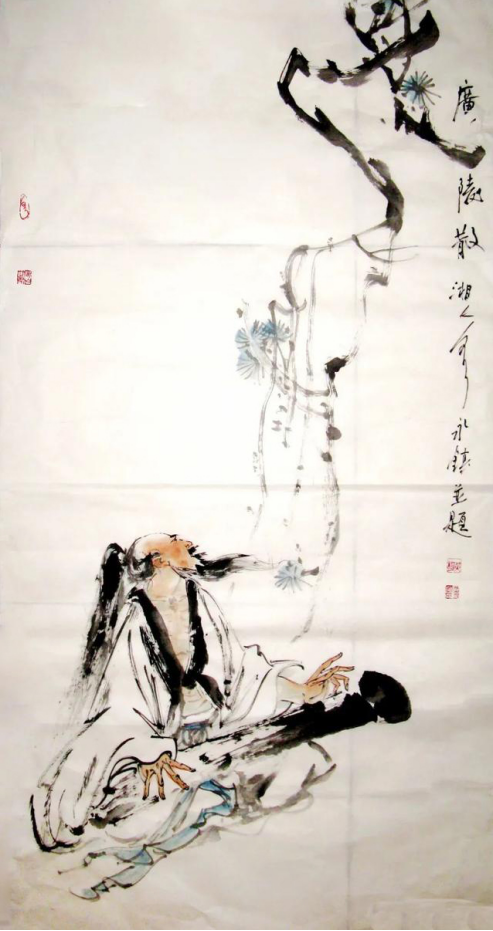 廣陵散 湘人 永鎮並題